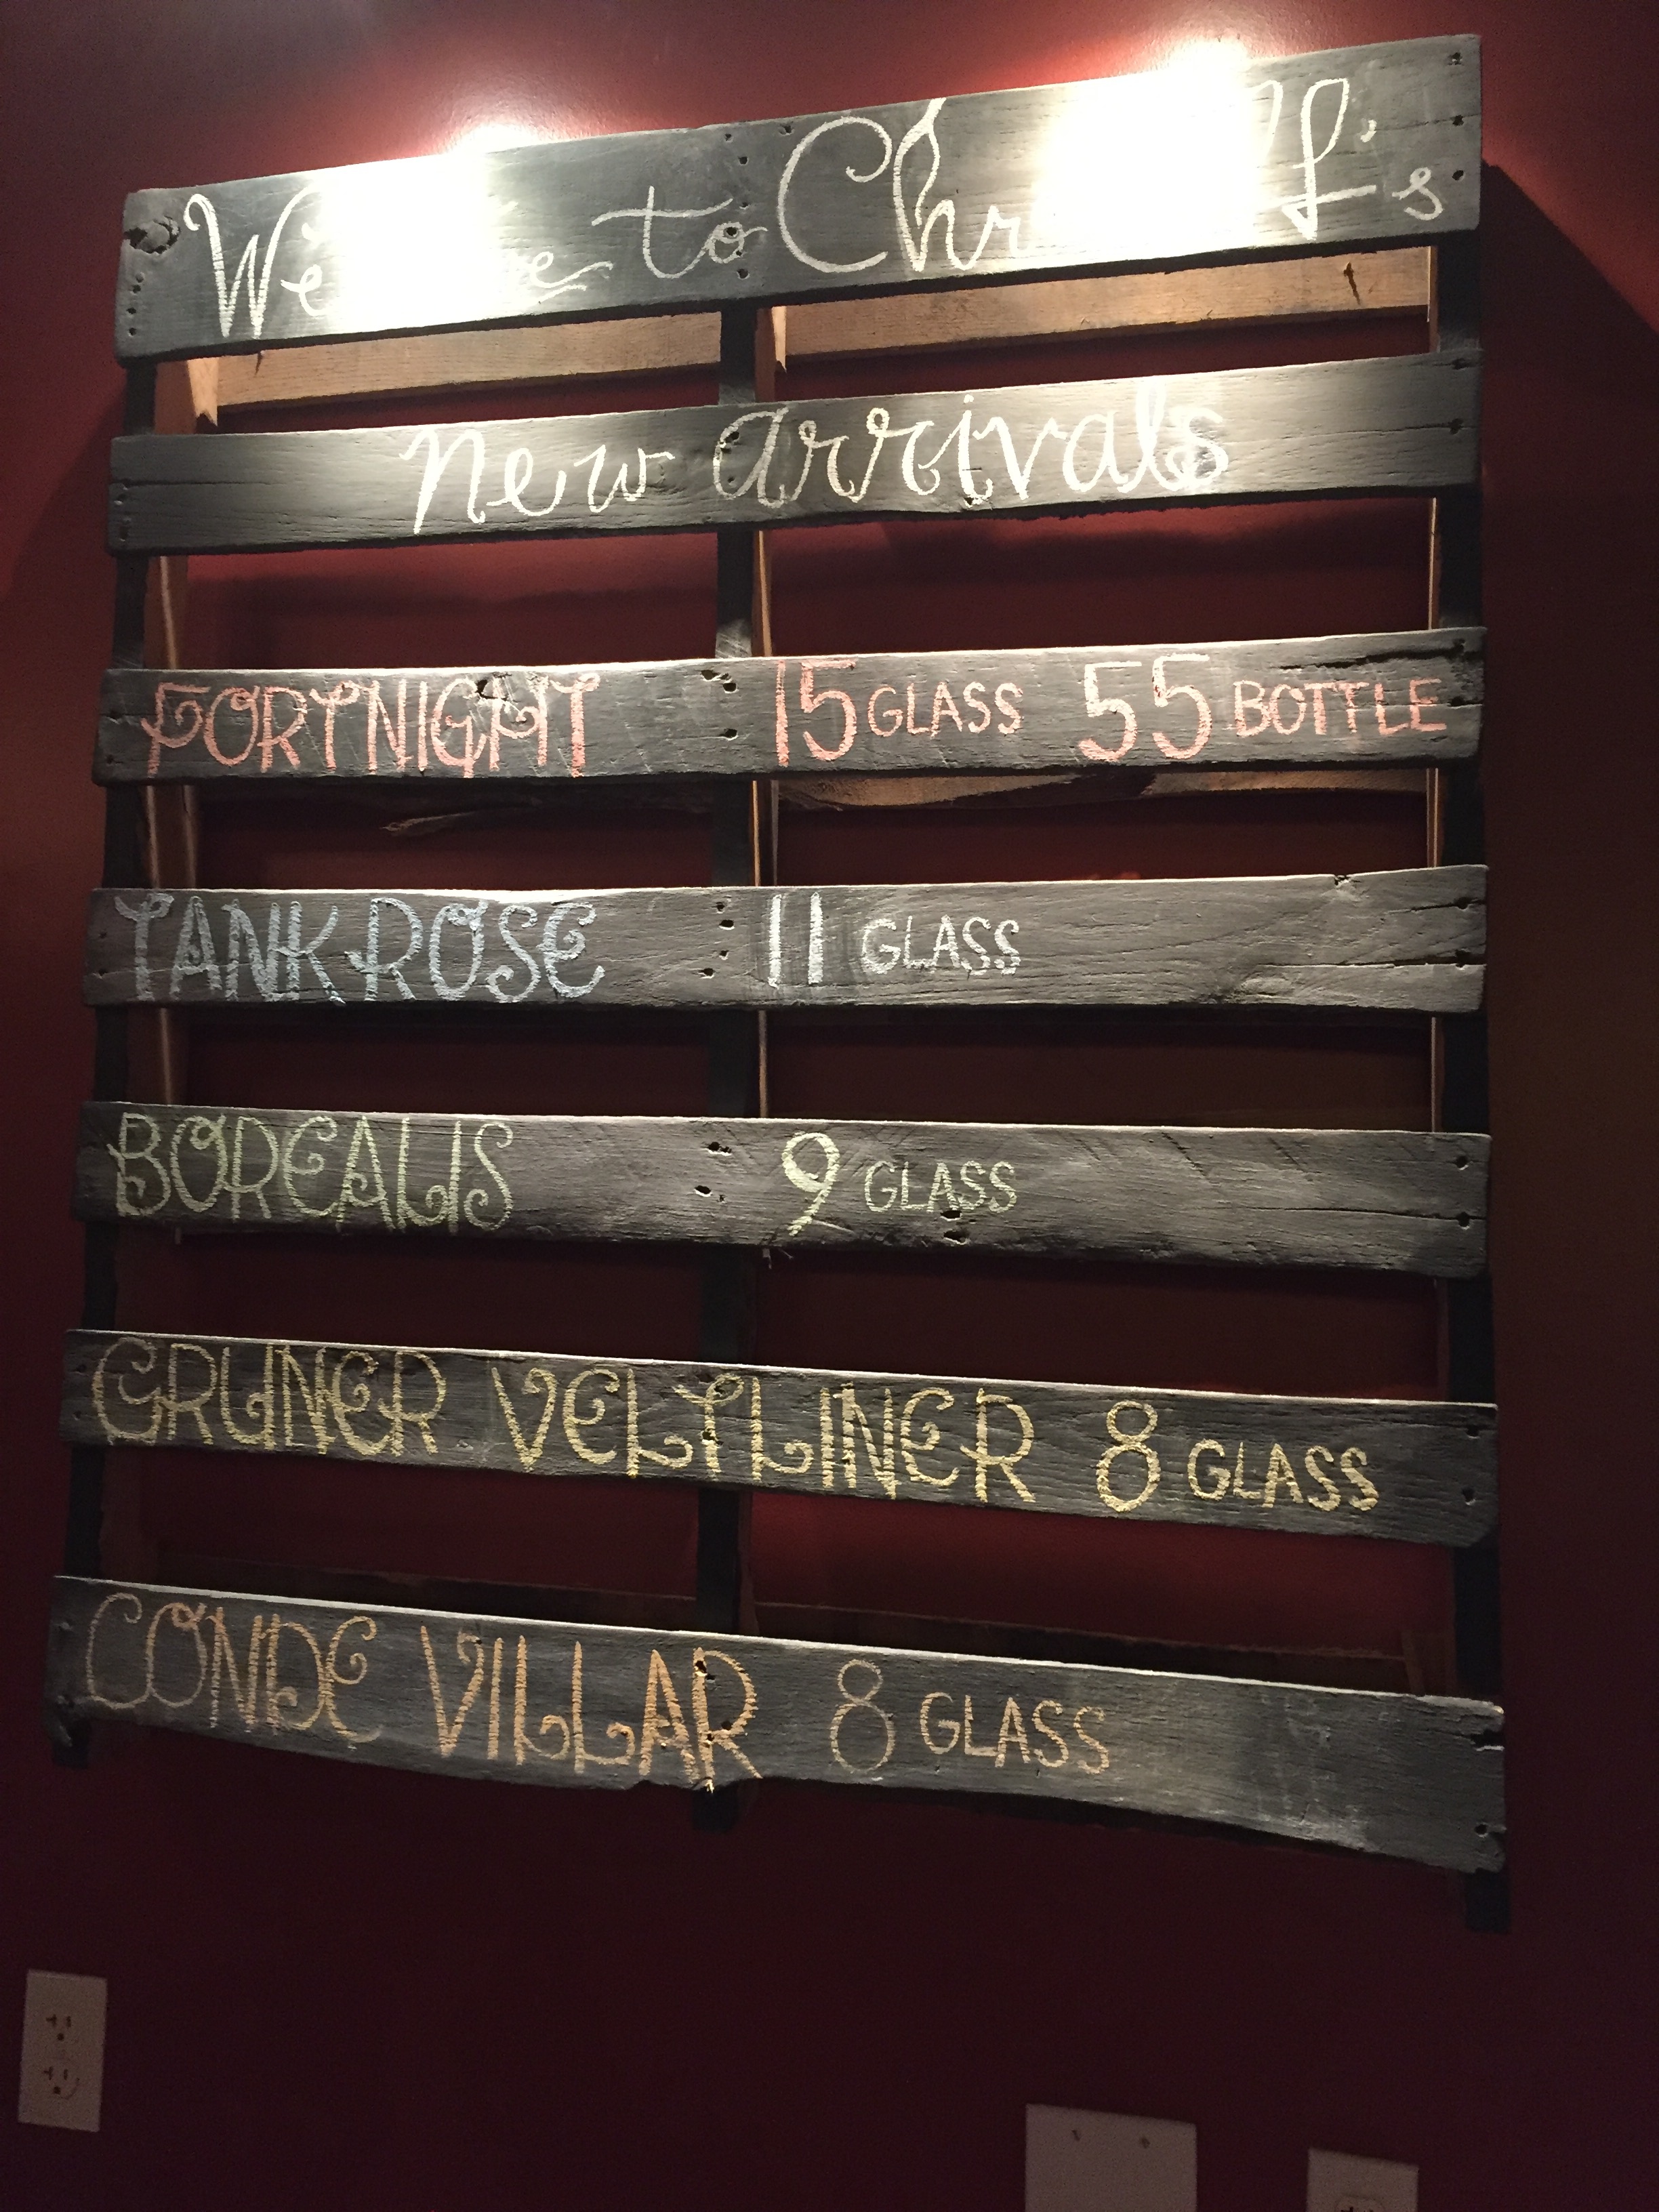 to
new arrivals
FORTNIGHT 15 GLASS 55 BOTTLE
TANK ROSE 11 GLASS
BOREALIS 9 GLASS
GRUNER VELTLINER 8 GLASS
CONDE VILLAR 8 GLASS